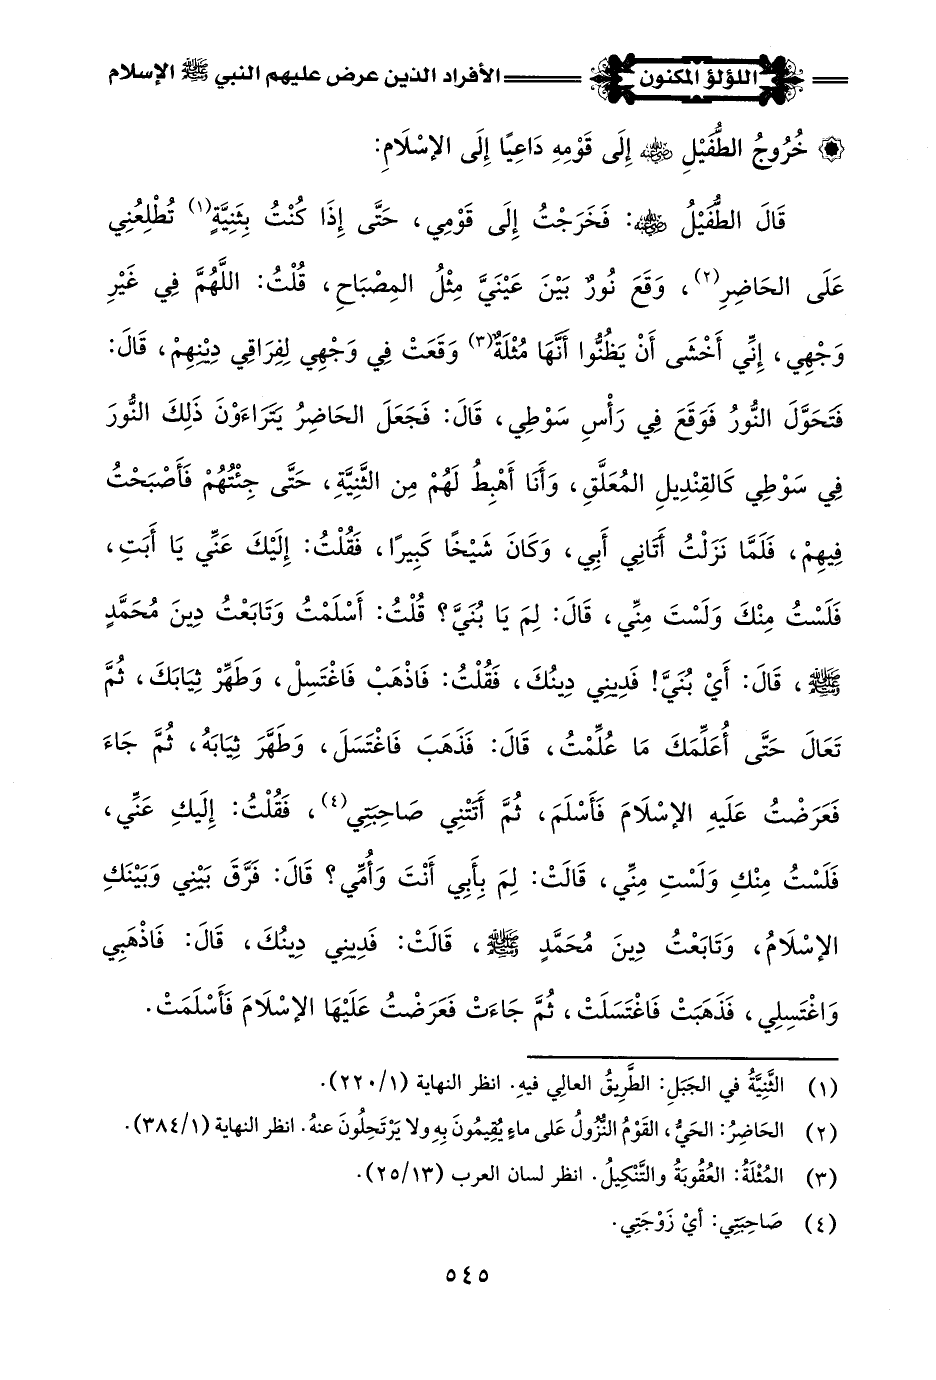 اللؤلؤ المكنون الأفراد الذين عرض عليهم النبي ﷺ الإسلام
خُرُوجُ الطُّفَيْلِ ﵁ إِلَى قَوْمِهِ دَاعِيًا إِلَى الإِسْلَامِ:
قَالَ الطُّفَيْلُ ﵁: فَخَرَجْتُ إِلَى قَوْمِي، حَتَّى إِذَا كُنْتُ بِثَنِيَّةٍ(١) تُطْلِعُنِي
عَلَى الحَاضِرِ(٢)، وَقَعَ نُورٌ بَيْنَ عَيْنَيَّ مِثْلُ المِصْبَاحِ، قُلْتُ: اللَّهُمَّ فِي غَيْرِ
وَجْهِي، إِنِّي أَخْشَى أَنْ يَظُنُّوا أَنَّهَا مُثْلَةٌ(٣) وَقَعَتْ فِي وَجْهِي لِفِرَاقِي دِيْنِهِمْ، قَالَ:
فَتَحَوَّلَ النُّورُ فَوَقَعَ فِي رَأْسِ سَوْطِي، قَالَ: فَجَعَلَ الحَاضِرُ يَتَرَاءَوْنَ ذَلِكَ النُّورَ
فِي سَوْطِي كَالقِنْدِيلِ المُعَلَّقِ، وَأَنَا أَهْبِطُ لَهُمْ مِن الثَّنِيَّةِ، حَتَّى جِئْتُهُمْ فَأَصْبَحْتُ
فِيهِمْ، فَلَمَّا نَزَلْتُ أَتَانِي أَبِي، وَكَانَ شَيْخًا كَبِيرًا، فَقُلْتُ: إِلَيْكَ عَنِّي يَا أَبَتِ،
فَلَسْتُ مِنْكَ وَلَسْتَ مِنِّي، قَالَ: لِمَ يَا بُنَيَّ؟ قُلْتُ: أَسْلَمْتُ وَتَابَعْتُ دِينَ مُحَمَّدٍ
ﷺ، قَالَ: أَيْ بُنَيَّ! فَدِينِي دِينُكَ، فَقُلْتُ: فَاذْهَبْ فَاغْتَسِلْ، وَطَهِّرْ ثِيَابَكَ، ثُمَّ
تَعَالَ حَتَّى أُعَلِّمَكَ مَا عُلِّمْتُ، قَالَ: فَذَهَبَ فَاغْتَسَلَ، وَطَهَّرَ ثِيَابَهُ، ثُمَّ جَاءَ
فَعَرَضْتُ عَلَيهِ الإِسْلَامَ فَأَسْلَمَ، ثُمَّ أَتَتْنِي صَاحِبَتِي(٤)، فَقُلْتُ: إِلَيكِ عَنِّي،
فَلَسْتُ مِنْكِ وَلَسْتِ مِنِّي، قَالَتْ: لِمَ بِأَبِي أَنْتَ وَأُمِّي؟ قَالَ: فَرَّقَ بَيْنِي وَبَيْنَكِ
الإِسْلَامُ، وَتَابَعْتُ دِينَ مُحَمَّدٍ ﷺ، قَالَتْ: فَدِينِي دِينُكَ، قَالَ: فَاذْهَبِي
وَاغْتَسِلِي، فَذَهَبَتْ فَاغْتَسَلَتْ، ثُمَّ جَاءَتْ فَعَرَضْتُ عَلَيْهَا الإِسْلَامَ فَأَسْلَمَتْ.
(١) الثَّنِيَّةُ في الجَبَلِ: الطَّرِيقُ العالي فيهِ. انظر النهاية (٢٢٠/١).
(٢) الحَاضِرُ: الحَيُّ، القَوْمُ النُّزُولُ عَلى ماءٍ يُقِيمُونَ بِهِ ولا يَرْتَحِلُونَ عنهُ. انظر النهاية (٣٨٤/١).
(٣) المُثْلَةُ: العُقُوبَةُ والتَّنْكِيلُ. انظر لسان العرب (٢٥/١٣).
(٤) صَاحِبَتِي: أيْ زَوْجَتِي.
٥٤٥